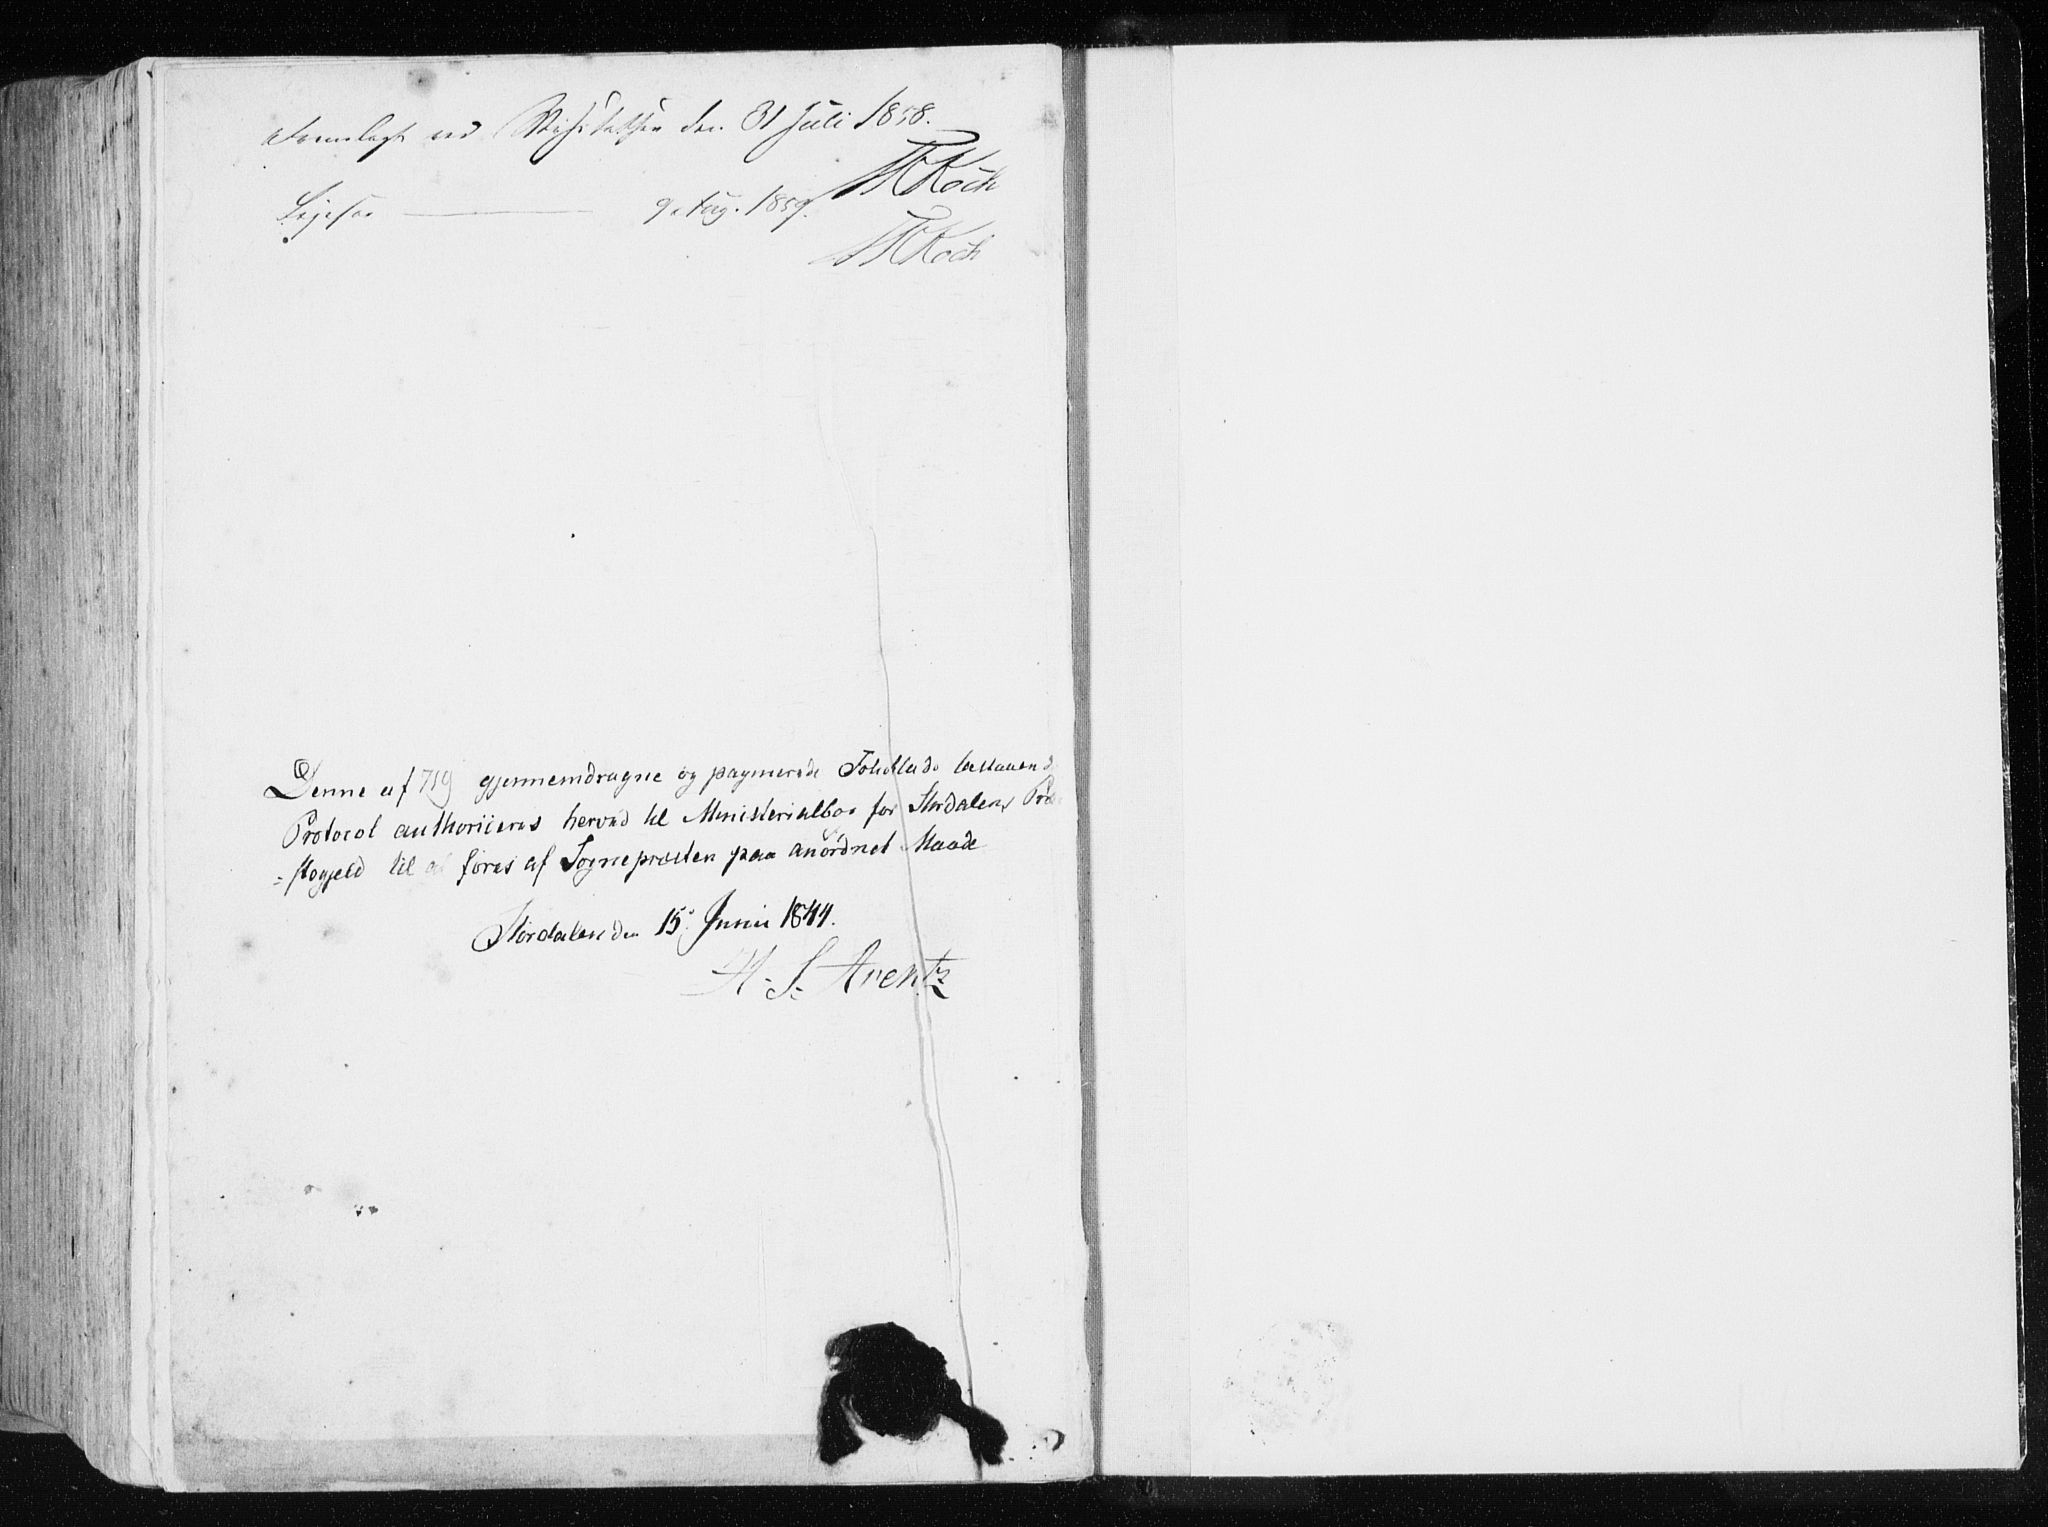 Fremlagt ved Visitatsen den 31 Juli 1858.
Koch
Ligesaa ——— 9 Aug. 1859.
Koch
Denne af 719 gjennemdragne og paginerede Folioblade bestaaend
Protocol authoriseres herved til Ministerialbog for Størdalens Præ-
=stegjeld til at føres af Sognepræsten paa anordnet Maade
Størdalen den 15. Junii 1844.
H. S. Arentz